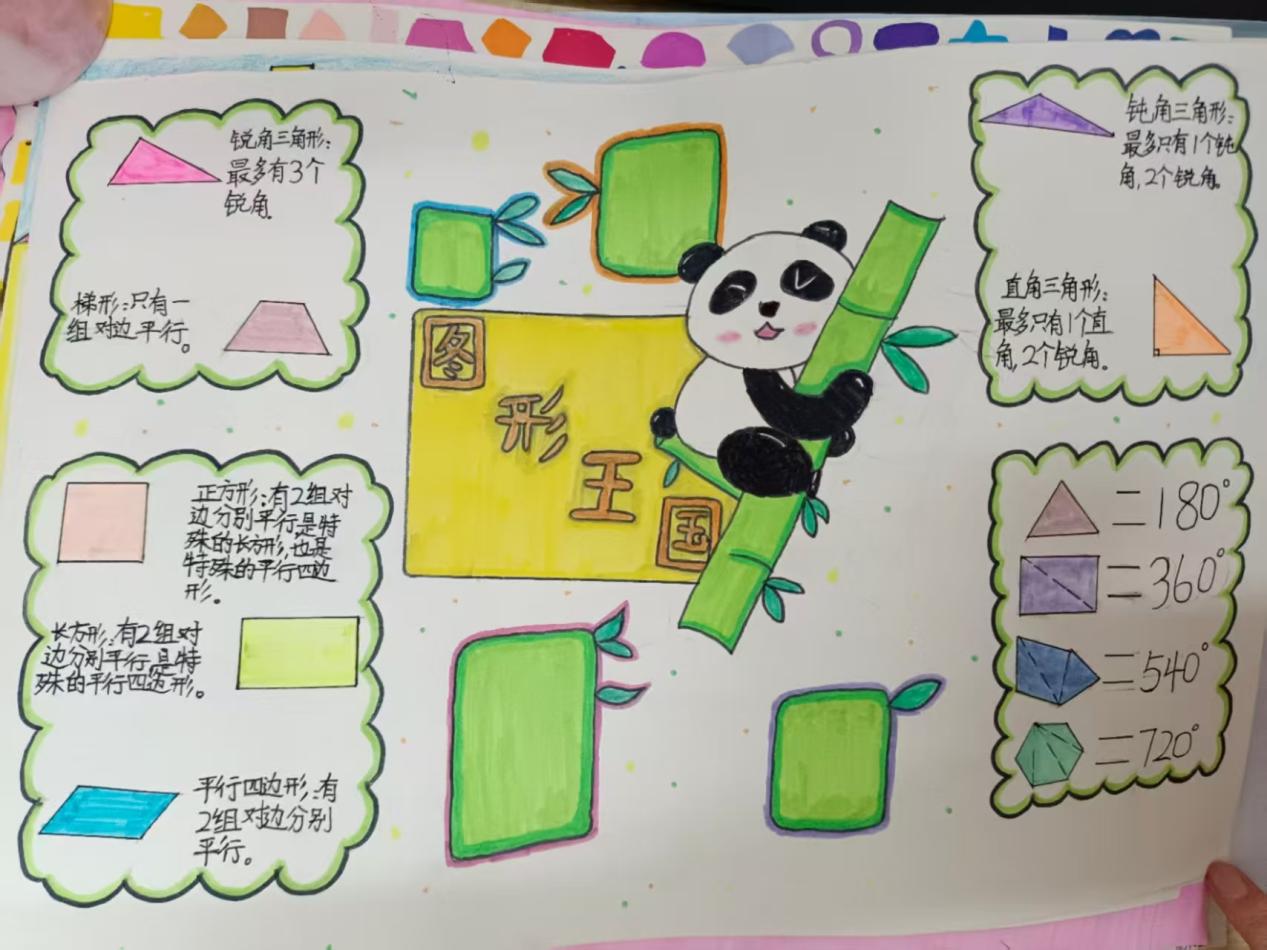 锐角三角形:
最多有3个
锐角。
梯形:只有一
组对边平行。
正方形:有2组对
边分别平行,是特
殊的长方形,也是
特殊的平行四边
形。
长方形:有2组对
边分别平行,是特
殊的平行四边形。
平行四边形:有
2组对边分别
平行。
图
形
王
国
钝角三角形:
最多只有1个钝
角,2个锐角。
直角三角形:
最多只有1个直
角,2个锐角。
=180°
=360°
=540°
=720°